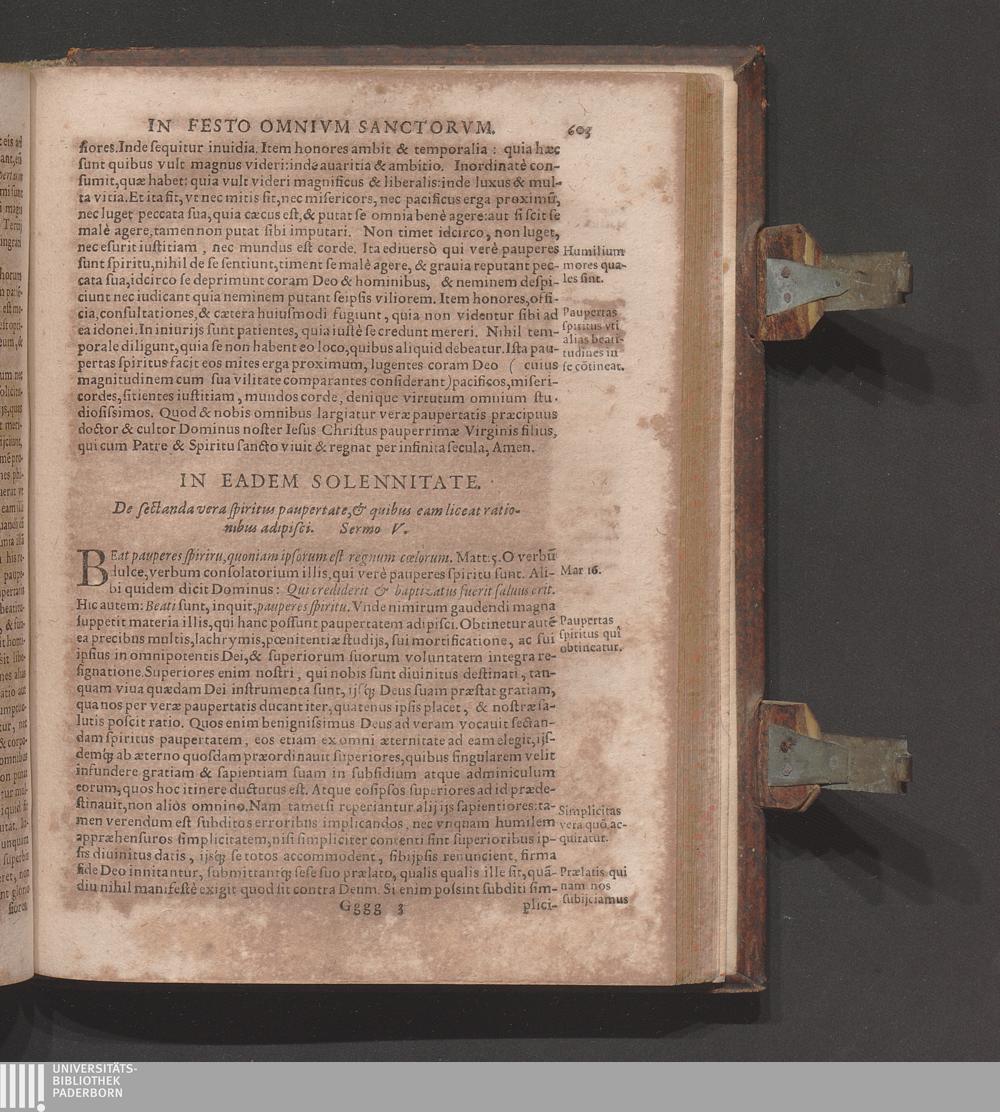 IN FESTO OMNIVM SANCTORVM. 603
fiores. Inde sequitur inuidia. Item honores ambit & temporalia : quia hæc
sunt quibus vult magnus videri: inde auaritia & ambitio. Inordinatè con-
sumit, quæ habet: quia vult videri magnificus & liberalis: inde luxus & mul-
ta vitia. Et ita fit, vt nec mitis sit, nec misericors, nec pacificus erga proximũ,
nec luget peccata sua, quia cæcus est, & putat se omnia benè agere: aut si scit se
malè agere, tamen non putat sibi imputari. Non timet idcirco, non luget,
nec esurit iustitiam, nec mundus est corde. Ita ediuersò qui verè pauperes
sunt spiritu, nihil de se sentiunt, timent se malè agere, & grauia reputant pec-
cata sua, idcirco se deprimunt coram Deo & hominibus, & neminem despi-
ciunt nec iudicant quia neminem putant seipsis viliorem. Item honores, offi-
cia, consultationes, & cætera huiusmodi fugiunt, quia non videntur sibi ad
ea idonei. In iniurijs sunt patientes, quia iustè se credunt mereri. Nihil tem-
porale diligunt, quia se non habent eo loco, quibus aliquid debeatur. Ista pau-
pertas spiritus facit eos mites erga proximum, lugentes coram Deo ( cuius
magnitudinem cum sua vilitate comparantes considerant) pacificos, miseri-
cordes, sitientes iustitiam, mundos corde, denique virtutum omnium stu-
diosissimos. Quod & nobis omnibus largiatur veræ paupertatis præcipuus
doctor & cultor Dominus noster Iesus Christus pauperrimæ Virginis filius,
qui cum Patre & Spiritu sancto viuit & regnat per infinita secula, Amen.
Humilium
mores qua-
les sint.
Paupertas
spiritus vti
alias beati-
tudines in
se cõtineat.
IN EADEM SOLENNITATE.
De sectanda vera spiritus paupertate, & quibus eam liceat ratio-
nibus adipisci. Sermo V.
BEat pauperes spiriru, quoniam ipsorum est regnum cœlorum. Matt. 5. O verbũ
dulce, verbum consolatorium illis, qui verè pauperes spiritu sunt. Ali-
bi quidem dicit Dominus: Qui crediderit & baptizatus fuerit saluus erit.
Hic autem: Beati sunt, inquit, pauperes spiritu. Vnde nimirum gaudendi magna
suppetit materia illis, qui hanc possunt paupertatem adipisci. Obtinetur autẽ
ea precibus multis, lachrymis, pœnitentiæ studijs, sui mortificatione, ac sui
ipsius in omnipotentis Dei, & superiorum suorum voluntatem integra re-
signatione. Superiores enim nostri, qui nobis sunt diuinitus destinati, tan-
quam viua quædam Dei instrumenta sunt, ijsq́; Deus suam præstat gratiam,
qua nos per veræ paupertatis ducant iter, quatenus ipsis placet, & nostræ sa-
lutis poscit ratio. Quos enim benignissimus Deus ad veram vocauit sectan-
dam spiritus paupertatem, eos etiam ex omni æternitate ad eam elegit, ijs-
demq́; ab æterno quosdam præordinauit superiores, quibus singularem velit
infundere gratiam & sapientiam suam in subsidium atque adminiculum
eorum, quos hoc itinere ducturus est. Atque eosipsos superiores ad id præde-
stinauit, non aliòs omnino. Nam tametsi reperiantur alij ijs sapientiores: ta-
men verendum est subditos erroribus implicandos, nec vnquam humilem
appræhensuros simplicitatem, nisi simpliciter contenti sint superioribus ip-
sis diuinitus datis, ijsq́; se totos accommodent, sibijpsis renuncient, firma
fide Deo innitantur, submittantq́; sese suo prælato, qualis qualis ille sit, quã-
diu nihil manifestè exigit quod sit contra Deum. Si enim possint subditi sim-
Gggg 3 plici-
Mar 16.
Paupertas
spiritus qui
obtineatur.
Simplicitas
vera quõ ac-
quiratur.
Prælatis qui
nam nos
subijciamus
UNIVERSITÄTS-
BIBLIOTHEK
PADERBORN